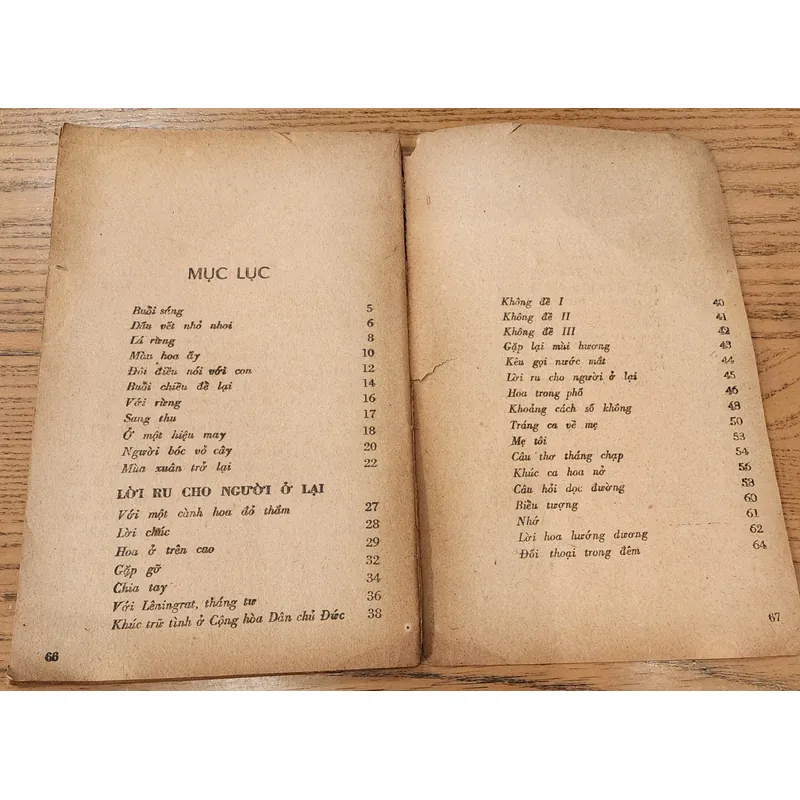 MỤC LỤC
Buổi sáng 5
Dấu vết nhỏ nhoi 6
Lá rừng 8
Màu hoa ấy 10
Đôi điều nói với con 12
Buổi chiều để lại 14
Với rừng 16
Sang thu 17
Ở một hiệu may 18
Người bóc vỏ cây 20
Mùa xuân trở lại 22
LỜI RU CHO NGƯỜI Ở LẠI
Với một cành hoa đỏ thắm 27
Lời chúc 28
Hoa ở trên cao 29
Gặp gỡ 32
Chia tay 34
Với Lêningrat, tháng tư 36
Khúc trữ tình ở Cộng hòa Dân chủ Đức 38
66
Không đề I 40
Không đề II 41
Không đề III 42
Gặp lại mùi hương 43
Kêu gọi nước mắt 44
Lời ru cho người ở lại 45
Hoa trong phố 46
Khoảng cách số không 48
Tráng ca về mẹ 50
Mẹ tôi 53
Câu thơ tháng chạp 54
Khúc ca hoa nở 56
Câu hỏi dọc đường 58
Biểu tượng 60
Nhớ 61
Lời hoa hướng dương 62
Đối thoại trong đêm 64
67